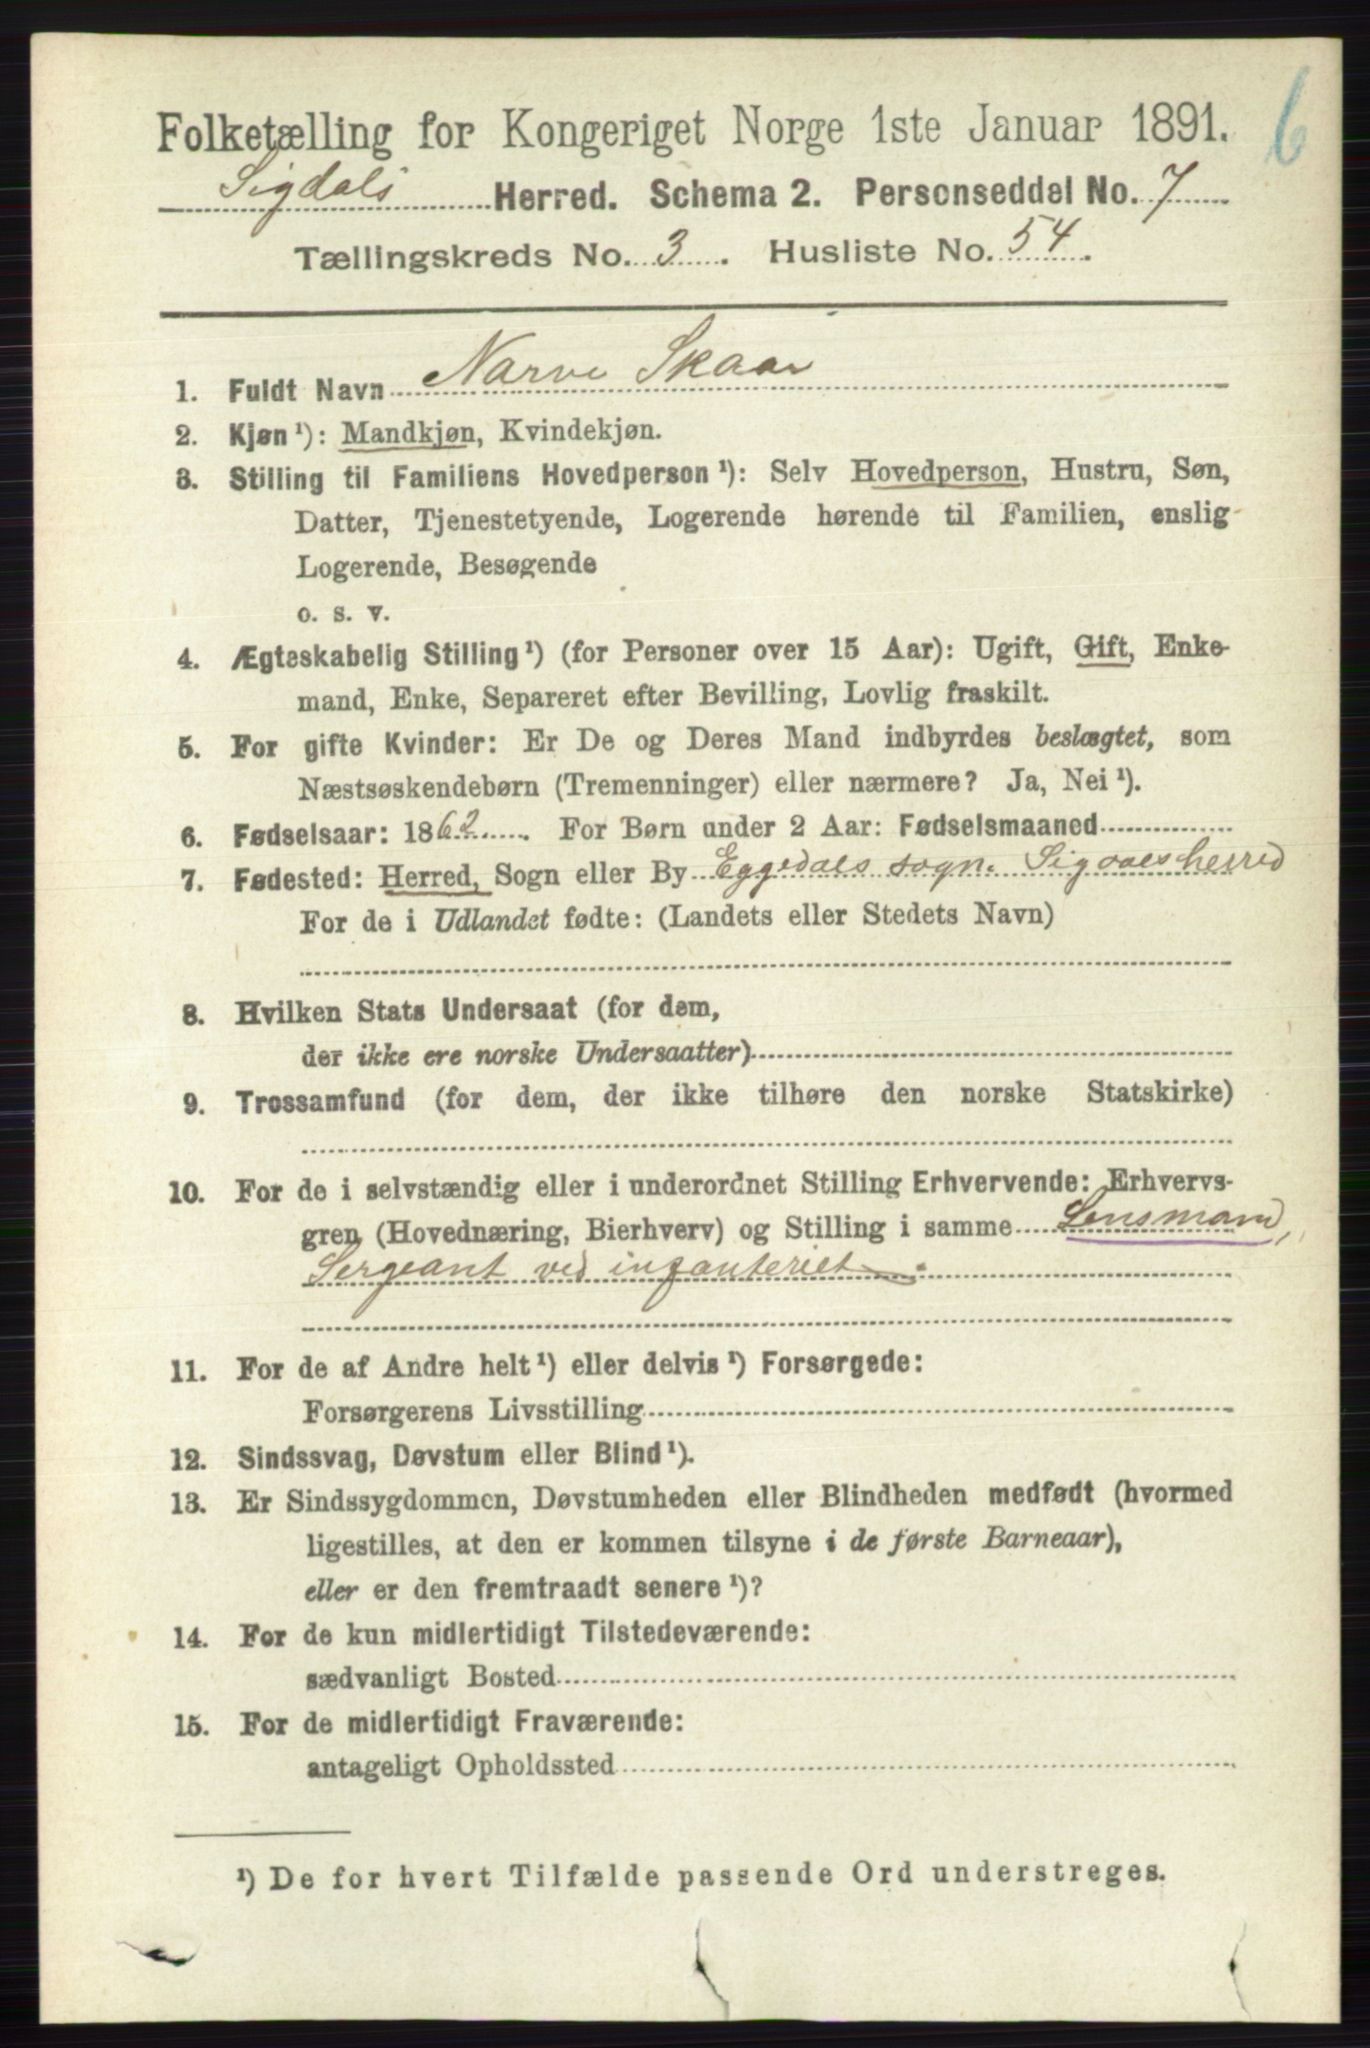 6
Folketælling for Kongeriget Norge 1ste Januar 1891.
Sigdals Herred. Schema 2. Personseddel No. 7
Tællingskreds No. 3. Husliste No. 54.
1. Fuldt Navn Narve Skaar
2. Kjøn ¹): Mandkjøn, Kvindekjøn.
3. Stilling til Familiens Hovedperson ¹): Selv Hovedperson, Hustru, Søn,
Datter, Tjenestetyende, Logerende hørende til Familien, enslig
Logerende, Besøgende
o. s. v.
4. Ægteskabelig Stilling ¹) (for Personer over 15 Aar): Ugift, Gift, Enke-
mand, Enke, Separeret efter Bevilling, Lovlig fraskilt.
5. For gifte Kvinder: Er De og Deres Mand indbyrdes beslægtet, som
Næstsøskendebørn (Tremenninger) eller nærmere? Ja, Nei ¹).
6. Fødselsaar: 1862. For Børn under 2 Aar: Fødselsmaaned
7. Fødested: Herred, Sogn eller By Eggedals sogn. Sigdals herred
For de i Udlandet fødte: (Landets eller Stedets Navn)
8. Hvilken Stats Undersaat (for dem,
der ikke ere norske Undersaatter)
9. Trossamfund (for dem, der ikke tilhøre den norske Statskirke)
10. For de i selvstændig eller i underordnet Stilling Erhvervende: Erhvervs-
gren (Hovednæring, Bierhverv) og Stilling i samme Lensmand,
Sergeant ved infanteriet.
11. For de af Andre helt ¹) eller delvis ¹) Forsørgede:
Forsørgerens Livsstilling
12. Sindssvag, Døvstum eller Blind ¹).
13. Er Sindssygdommen, Døvstumheden eller Blindheden medfødt (hvormed
ligestilles, at den er kommen tilsyne i de første Barneaar),
eller er den fremtraadt senere ¹)?
14. For de kun midlertidigt Tilstedeværende:
sædvanligt Bosted
15. For de midlertidigt Fraværende:
antageligt Opholdssted
¹) De for hvert Tilfælde passende Ord understreges.